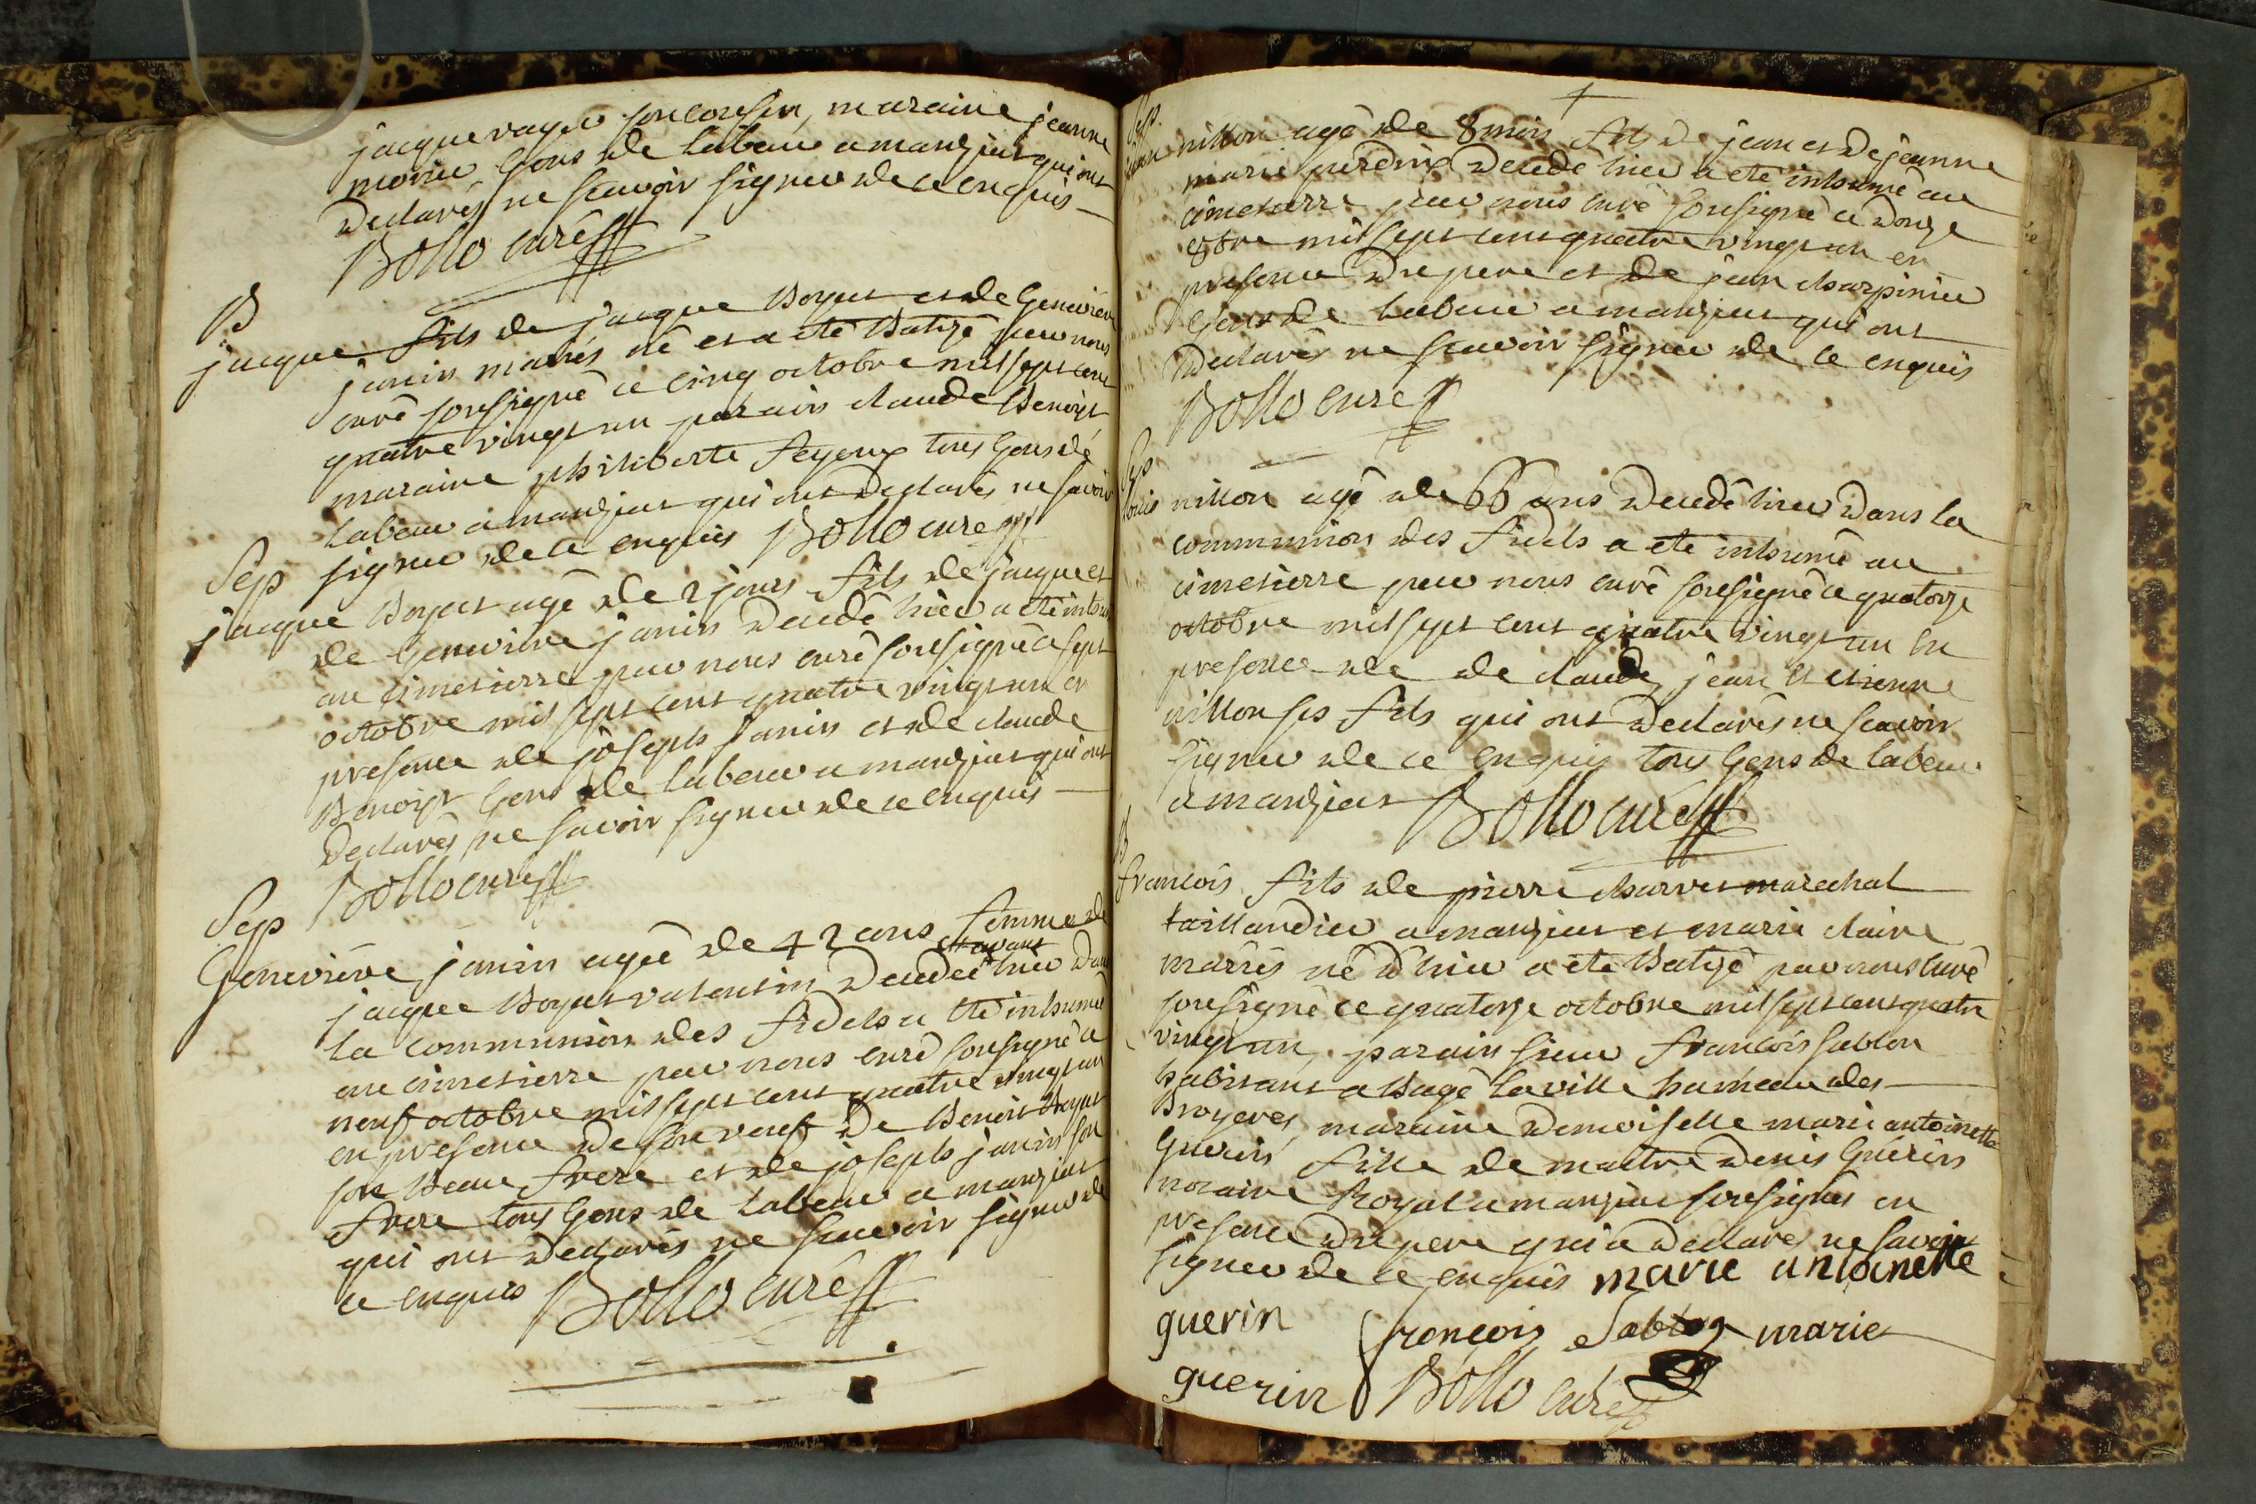 jacque voyer son cousin, maraine jeanne
morier, gens de labeur a manziat qui ont
declarés ne scavoir signer de ce enquis
Bollo curé
B
jacque fils de jacque Boyat et de Genevieve
janin mariés né et a eté Batizé par nous
curé sousigné ce cinq octobre mil sept cent
quatre vingt un parain claude Benoist
maraine philiberte feyeux tous Gens de
labeur a manziat qui ont declarés ne savoir
signer de ce enquis Bollo curé
Sep
jacque Boyat agé de 2 jours fils de jacque et
de Genevieve janin decedé hier a eté inhumé
au cimetierre par nous curé sousigné ce sept
octobre mil sept cent quatre vingt un en
presence de joseph janin et de claude
Benoist Gens de labeur a manziat qui ont
declarés ne savoir signer de ce enquis
Bollo curé
Sep
Genevieve janin agée de 42 ans femme de
jacque Boyat valentin decedée hier dans
la communion des fidels a eté inhumée
au cimetierre par nous curé sousigné ce
neuf octobre mil sept cent quatre vingt un
en presence de son veuf de Benoit Boyat
son Beau frere et de joseph janin son
frere tous Gens de labeur a manziat
qui ont declarés ne scavoir signer de
ce enquis Bollo curé
Sep
jean nillon agé de 8 mois fils de jean et de jeanne
marie perdrix decedé hier a eté inhumé au
cimetierre par nous curé sousigné ce douze
8bre mil sept cent quatre vingt un en
presence du pere et de jean charpinier
Gens de labeur a manziat qui ont
declarés ne scavoir signer de ce enquis
Bollo curé
Sep
louis nillon agé de 66 ans decedé hier dans la
communion des fidels a eté inhumé au
cimetierre par nous curé sousigné ce quatorze
octobre mil sept cent quatre vingt un en
presence de de claude, jean et etienne
nillon ses fils qui ont declarés ne scavoir
signer de ce enquis tous Gens de labeur
a manziat Bollo curé
B
francois fils de pierre charvet marechal
taillandier a manziat et marie claire
mariés né d'hier a eté Batizé par nous curé
sousigné ce quatorze octobre mil sept cent quatre
vingt un, parain sieur francois sablon
habitant a Bagé la ville hameau des
Broyeres, maraine demoiselle marie antoinette
Guerin fille de maitre denis Guerin
notaire Royal a manziat sousignés en
presence du pere qui a declaré ne savoir
signer de ce enquis marie antoinette
guerin françois Sablon marie
guerin Bollo curé